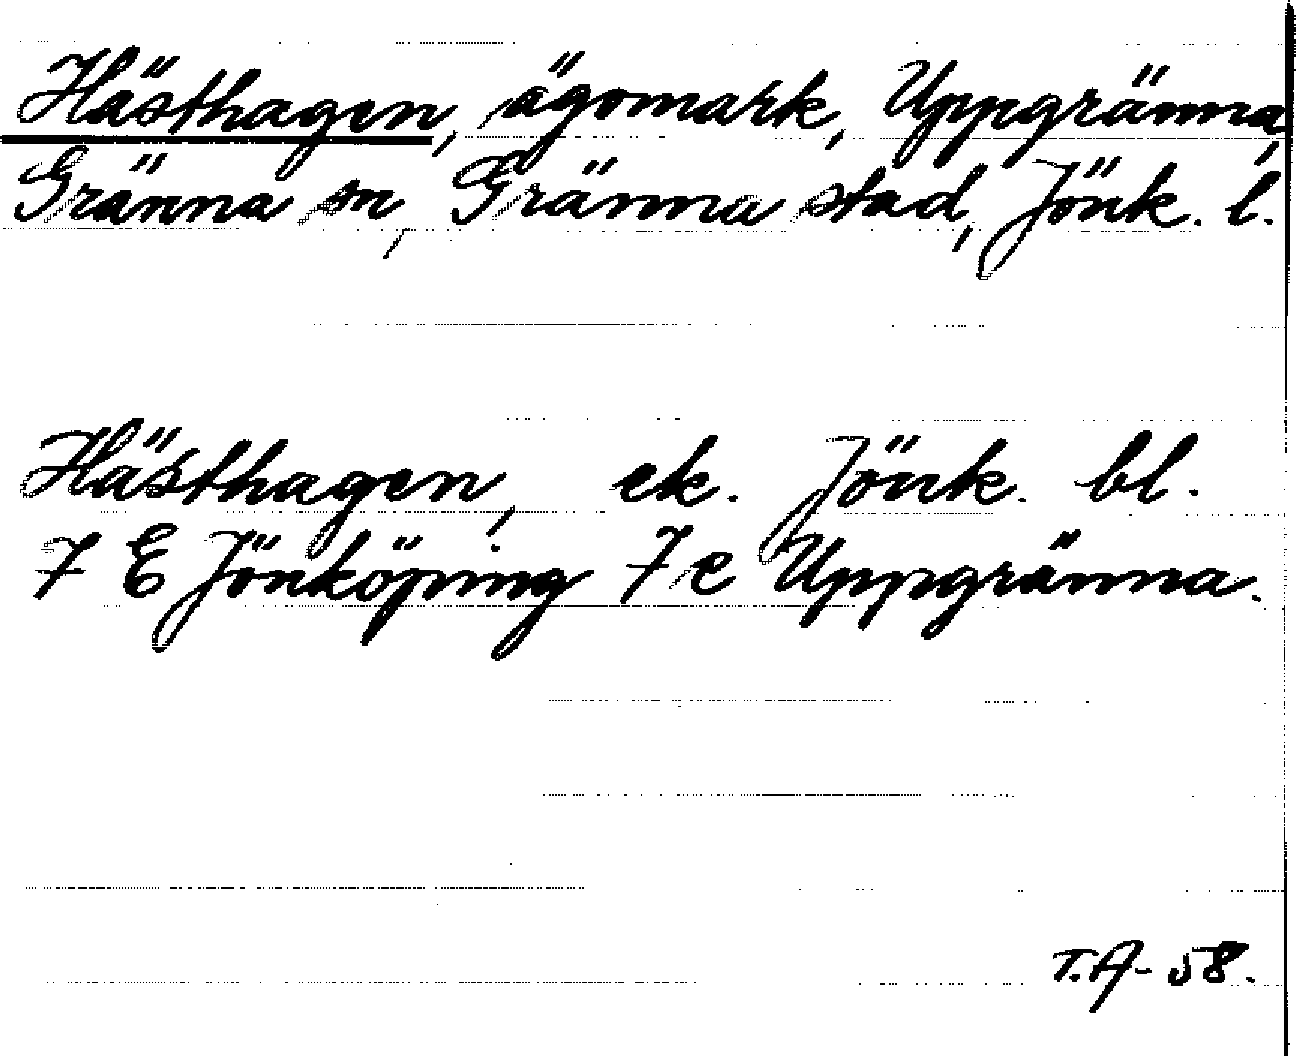 Hästhagen, ägomark, Uppgränna,
Gränna sn, Gränna stad, Jönk. l.
Hästhagen, ek. Jönk. bl.
7 E Jönköping 7 e Uppgränna.
T.A-58.